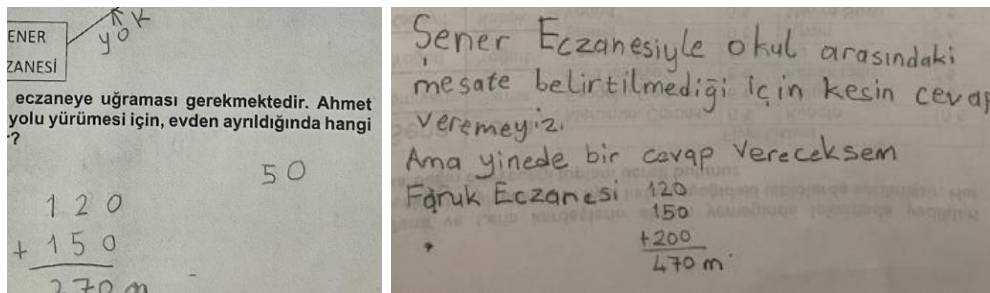 ENER
ZANESİ
yOK
eczaneye uğraması gerekmektedir. Ahmet
yolu yürümesi için, evden ayrıldığında hangi
?
50
120
+ 150
270 m
Şener Eczanesiyle okul arasındaki
mesafe belirtilmediği için kesin cevap
veremeyiz.
Ama yinede bir cevap vereceksem
Faruk Eczanesi 120
150
+200
470 m